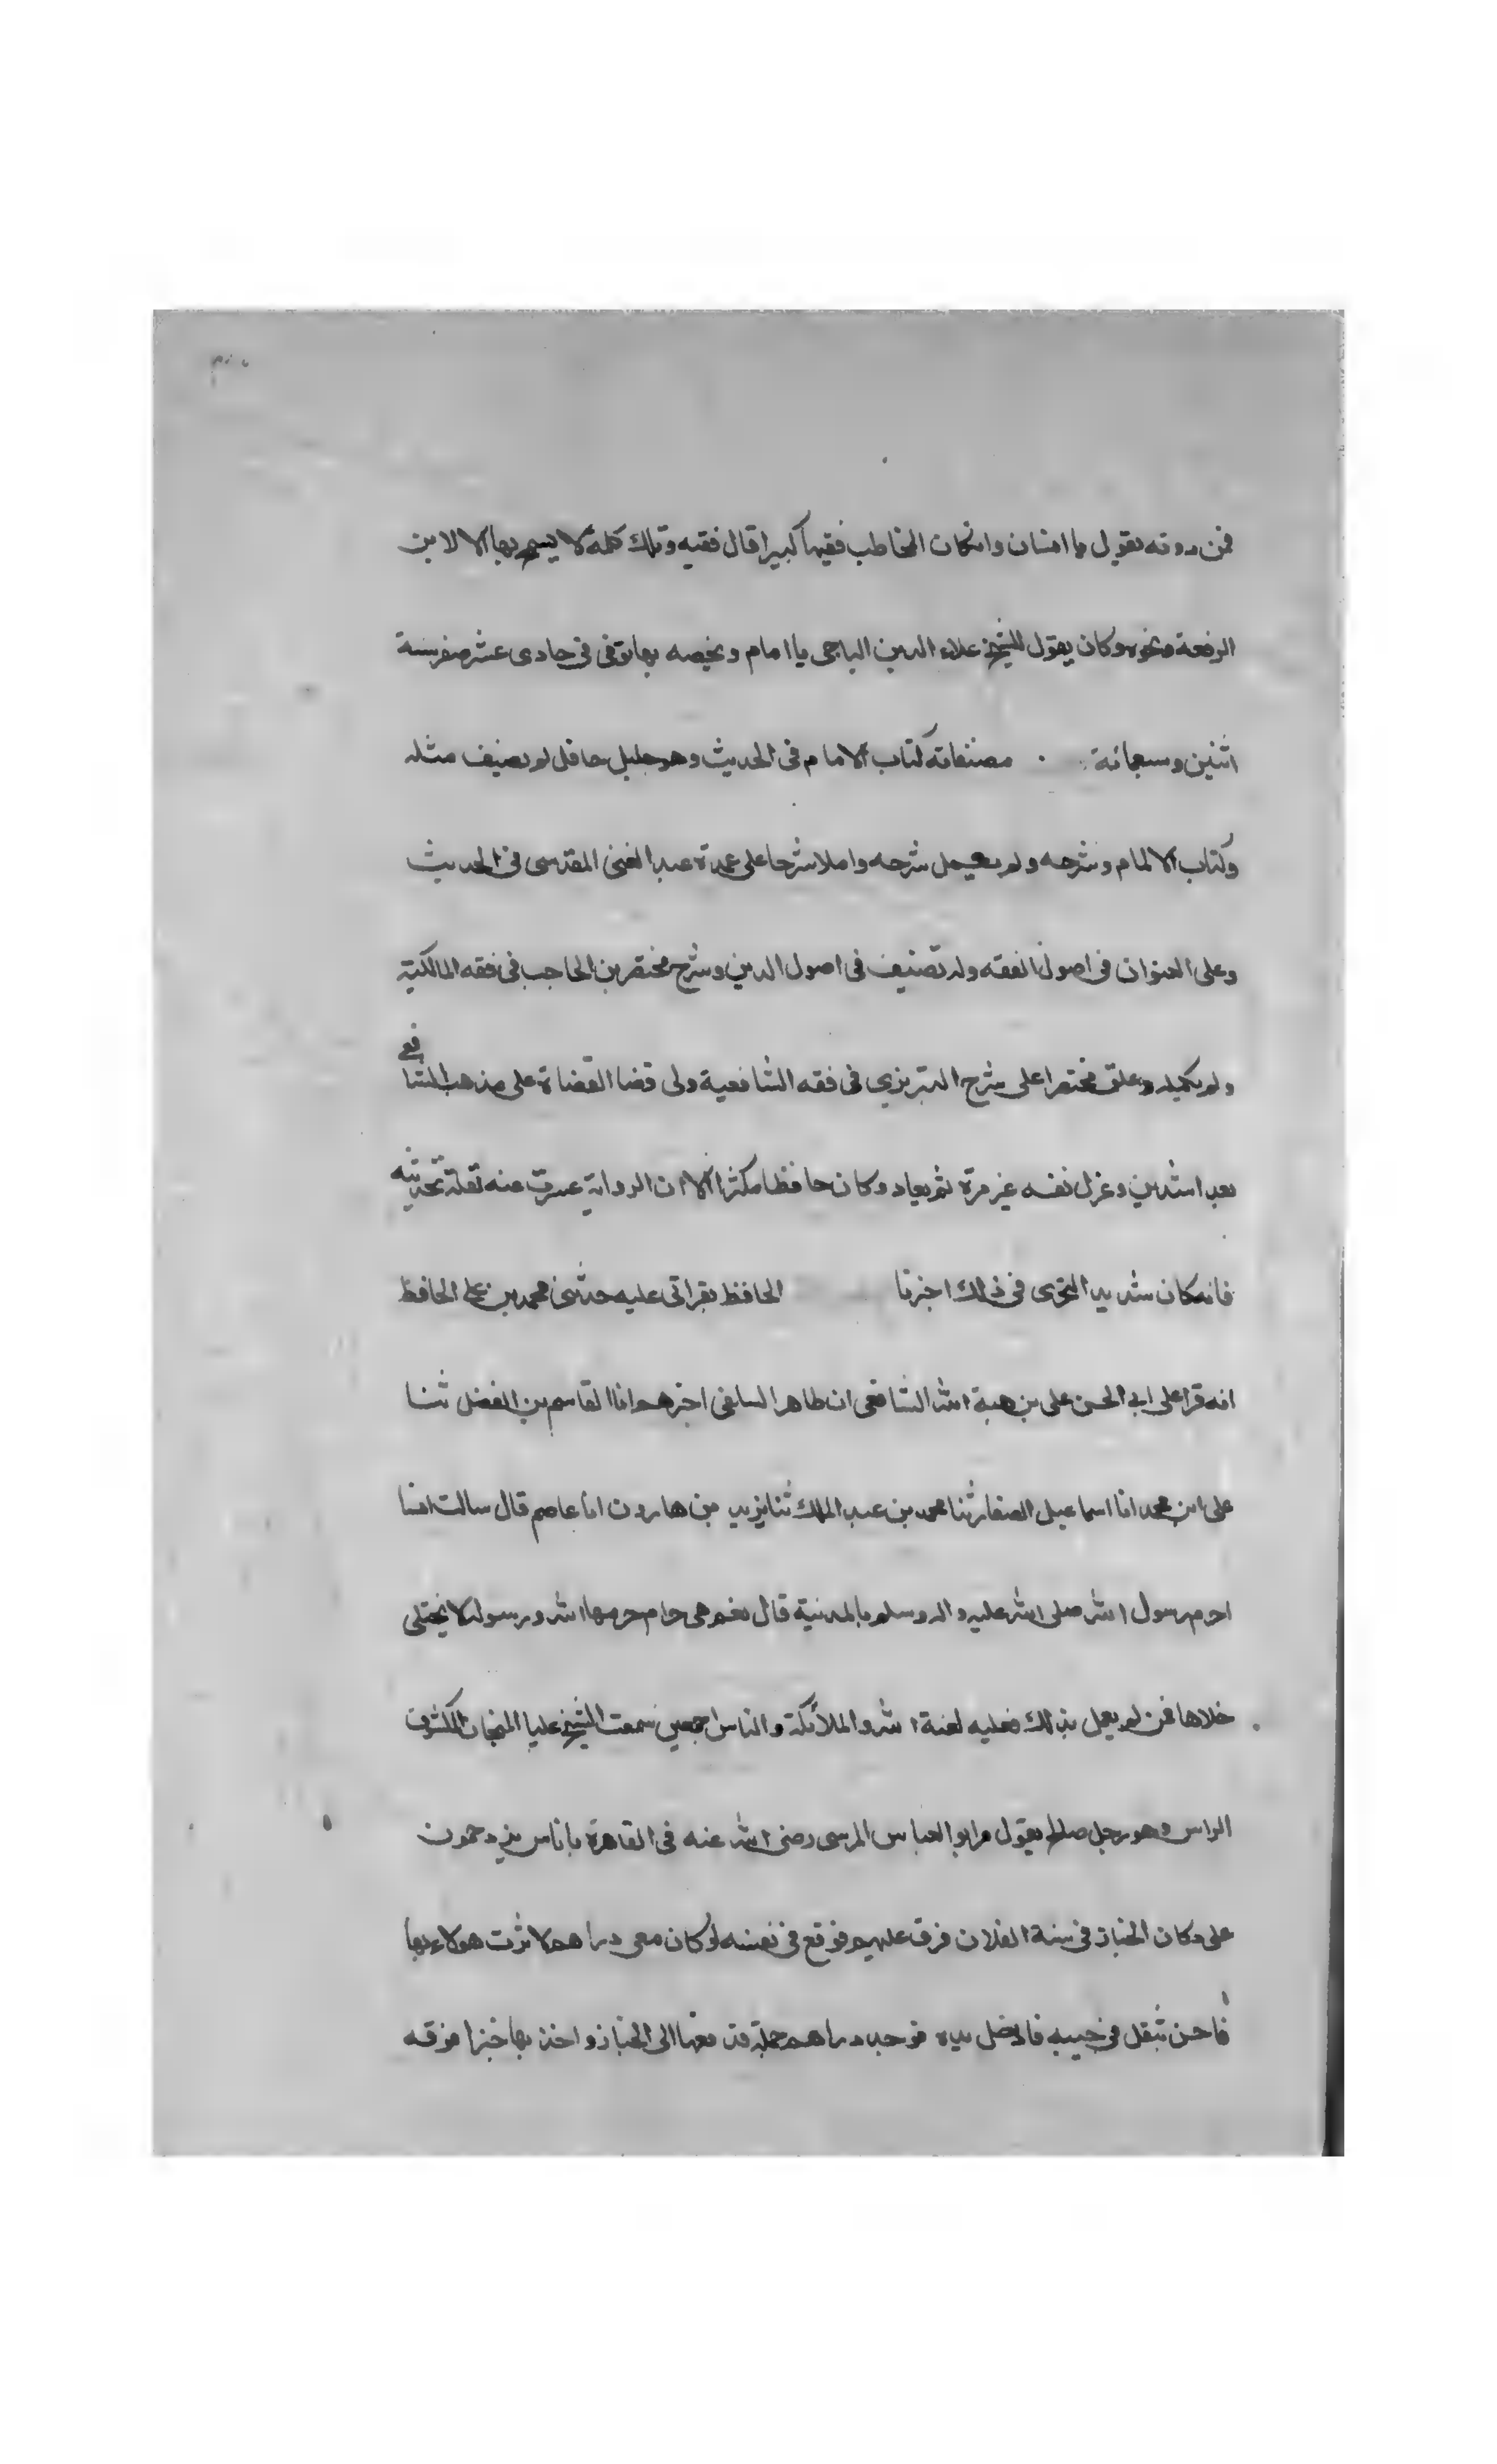 فمن دونه يقول يا انسان وان كان المخاطب فقيها كبيرا قال فقيه وتلك كلمة لا يسمح بها الا لابن
الرفعة ونحوه وكان يقول للشيخ علاء الدين الباجى يا امام ويخصه بها توفى فى حادى عشر صفر سنة
اثنين وسبعمائة . مصنفاته كتاب الامام فى الحديث وهو جليل حافل لم يصنف مثله
وكتاب الالمام وشرحه ولم يكمل شرحه واملا شرحا على عمدة عبد الغنى المقدسى فى الحديث
وعلى العنوان فى اصول الفقه وله تصنيف فى اصول الدين وشرح مختصر بن الحاجب فى فقه المالكية
ولم يكمله وعلق مختصرا على شرح التبريزي فى فقه الشافعية ولى قضا القضاة على مذهب الشافعي
بعد وعزل نفسه غير مرة ثم يعاد وكان حافظا مكثرا الا ان الرواية عسرت عنه لقلة تحديثه
فانه كان شديد التحرى فى ذلك اخبرنا الحافظ بقراتى عليه حدثنى محمد بن على الحافظ
انه قرا على ابي الحسن على بن هبة الله الشافعى ان طاهر السلفى اخبرهم انا القاسم بن الفضل ثنا
على ابن محمد انا اسماعيل الصفار ثنا محمد بن عبد الملك ثنا يزيد بن هارون انا عاصم قال سالت انسا
احرم رسول الله صلى الله عليه واله وسلم بالمدينة قال نعم هى حرام حرمها الله ورسوله لا يختلى
خلاها فمن لم يعمل بذلك فعليه لعنة الله والملائكة والناس اجمعين سمعت الشيخ عليا المكشوف
الراس وهو رجل صالح يقول مر ابو العباس المرسى رضى الله عنه فى القاهرة باناس يزدحمون
على دكان الخباز فى سنة الغلا فرق عليهم فوقع فى نفسه لو كان معى دراهم لاثرت هولاء بها
فاحس بثقل فى جيبه فادخل يده فوجد دراهم جملة فدفعها الى الخباز واخذ بها خبزا فرقه